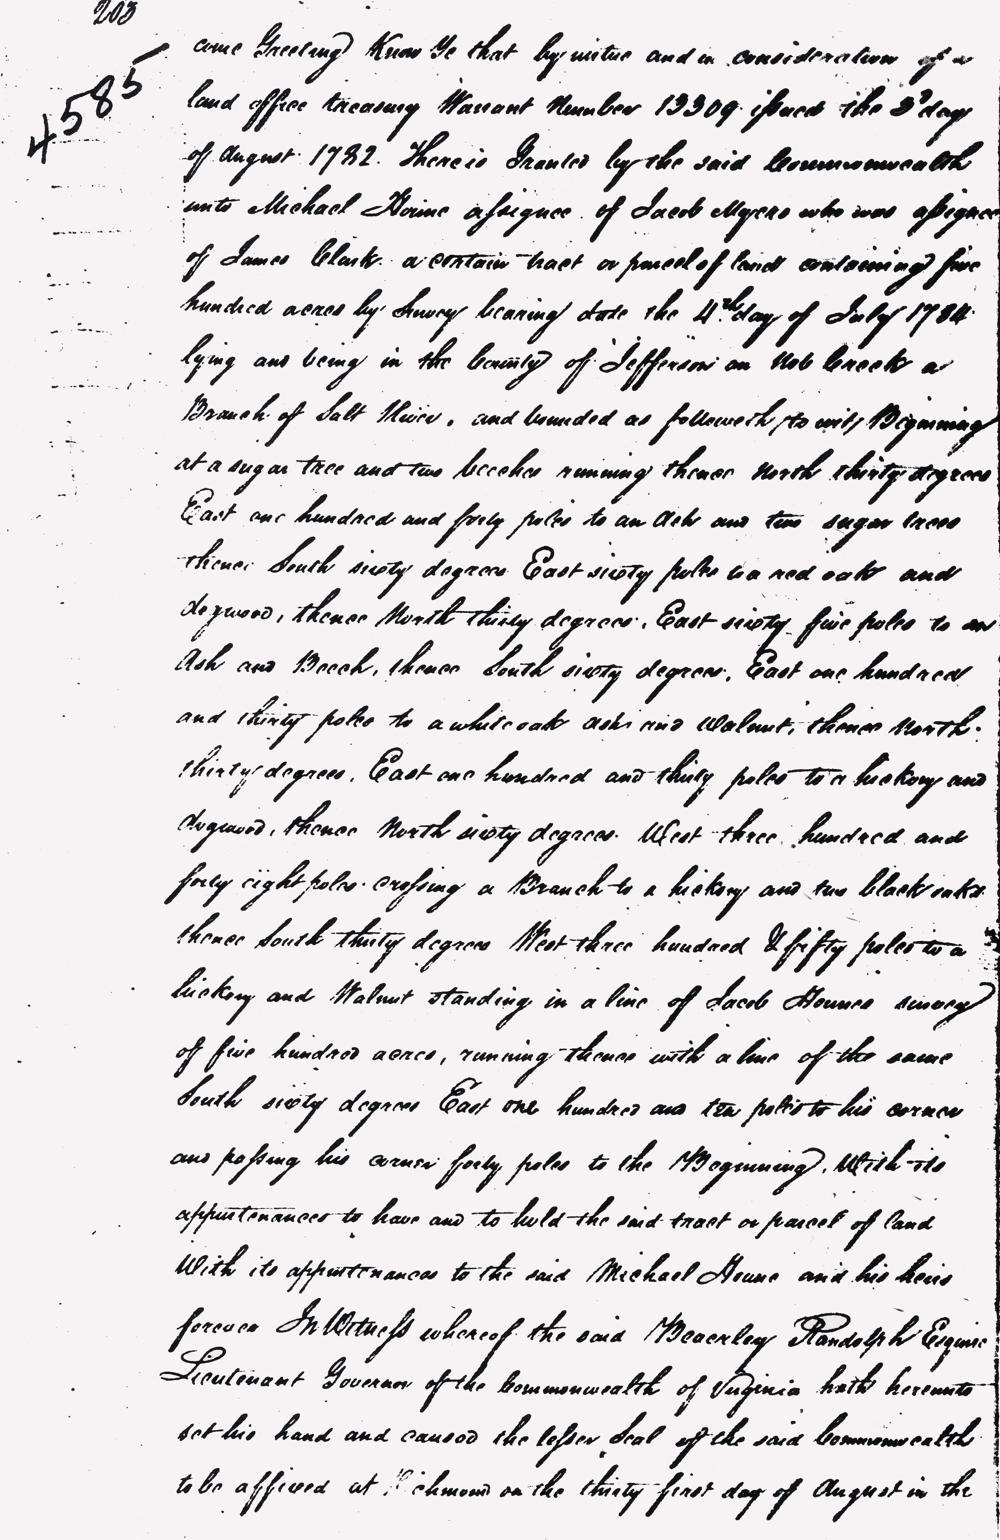 203
4585
come Greeting Know Ye that by virtue and in consideration of a
land office treasury Warrant Number 13309 issued the 3d day
of August 1782. There is Granted by the said Commonwealth
unto Michael Horine assignee of Jacob Myers who was assignee
of James Clark a certain tract or parcel of land containing five
hundred acres by Survey bearing date the 4th day of July 1784
lying and being in the County of Jefferson on Nob Creek a
Branch of Salt River, and bounded as followeth /to wit/ Beginning
at a sugar tree and two beeches running thence North thirty degrees
East one hundred and forty poles to an Ash and two sugar trees
thence South sixty degrees East sixty poles to a red oak and
dogwood, thence North thirty degrees, East sixty five poles to an
Ash and Beech, thence South sixty degrees, East one hundred
and thirty poles to a white oak ash and Walnut, thence North
thirty degrees, East one hundred and thirty poles to a hickory and
dogwood, thence North sixty degrees West three hundred and
forty eight poles crossing a Branch to a hickory and two black oaks
thence South thirty degrees West three hundred & fifty poles to a
hickory and Walnut standing in a line of Jacob survey
of five hundred acres, running thence with a line of the same
South sixty degrees East one hundred and ten poles to his corner
and passing his corner forty poles to the Beginning, With its
appurtenances to have and to hold the said tract or parcel of land
With its appurtenances to the said Michael and his heirs
forever In Witness whereof the said Beverley Randolph Esquire
Lieutenant Governor of the Commonwealth of Virginia hath hereunto
set his hand and caused the lesser Seal of the said Commonwealth
to be affixed at Richmond on the thirty first day of August in the